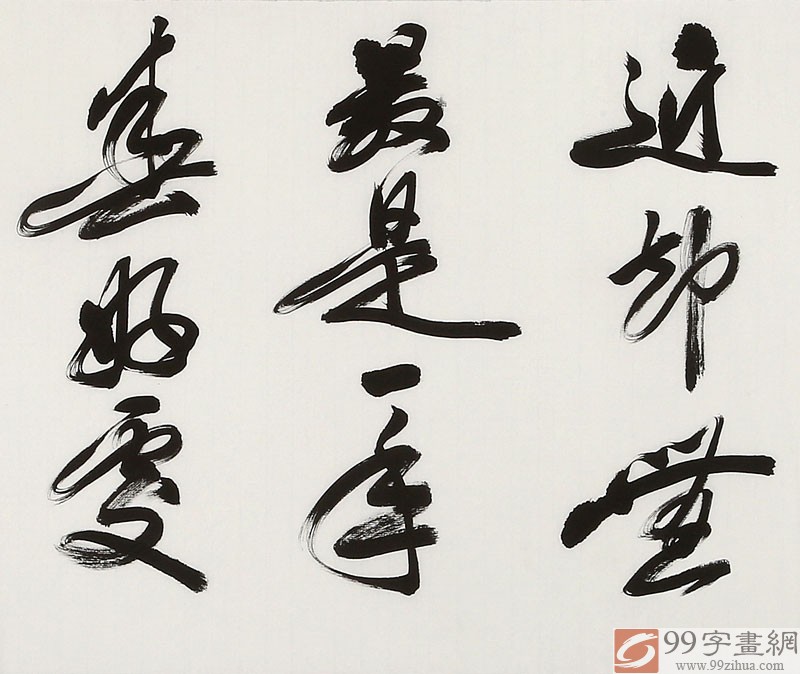 近却無
最是一年
春好處
99字畫網
www.99zihua.com